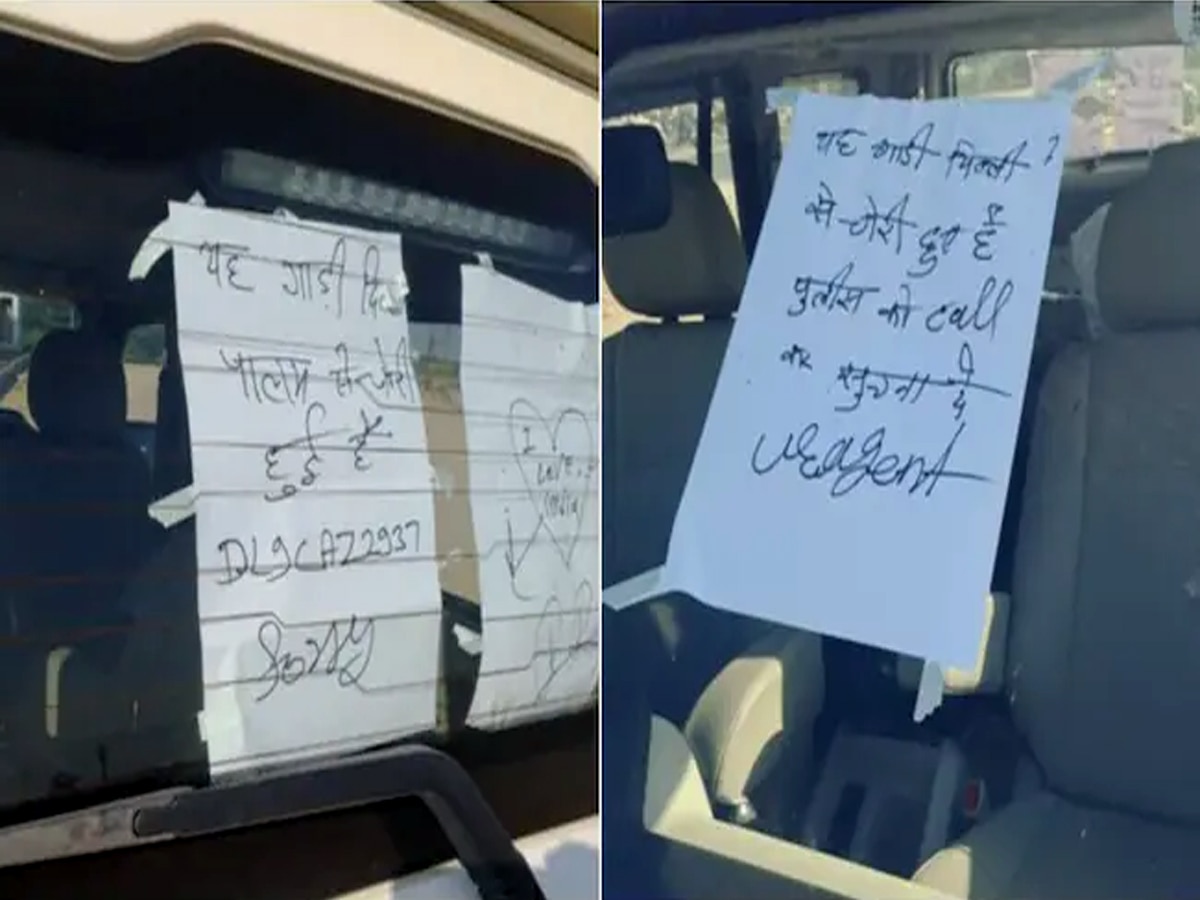 यह गाड़ी दिल्ली
पालम से चोरी
हुई है
DL9CAZ2937
Sorry
I
Love
India
यह गाडी दिल्ली
से चोरी हुई है
पुलीस को call
कर सुचना दे